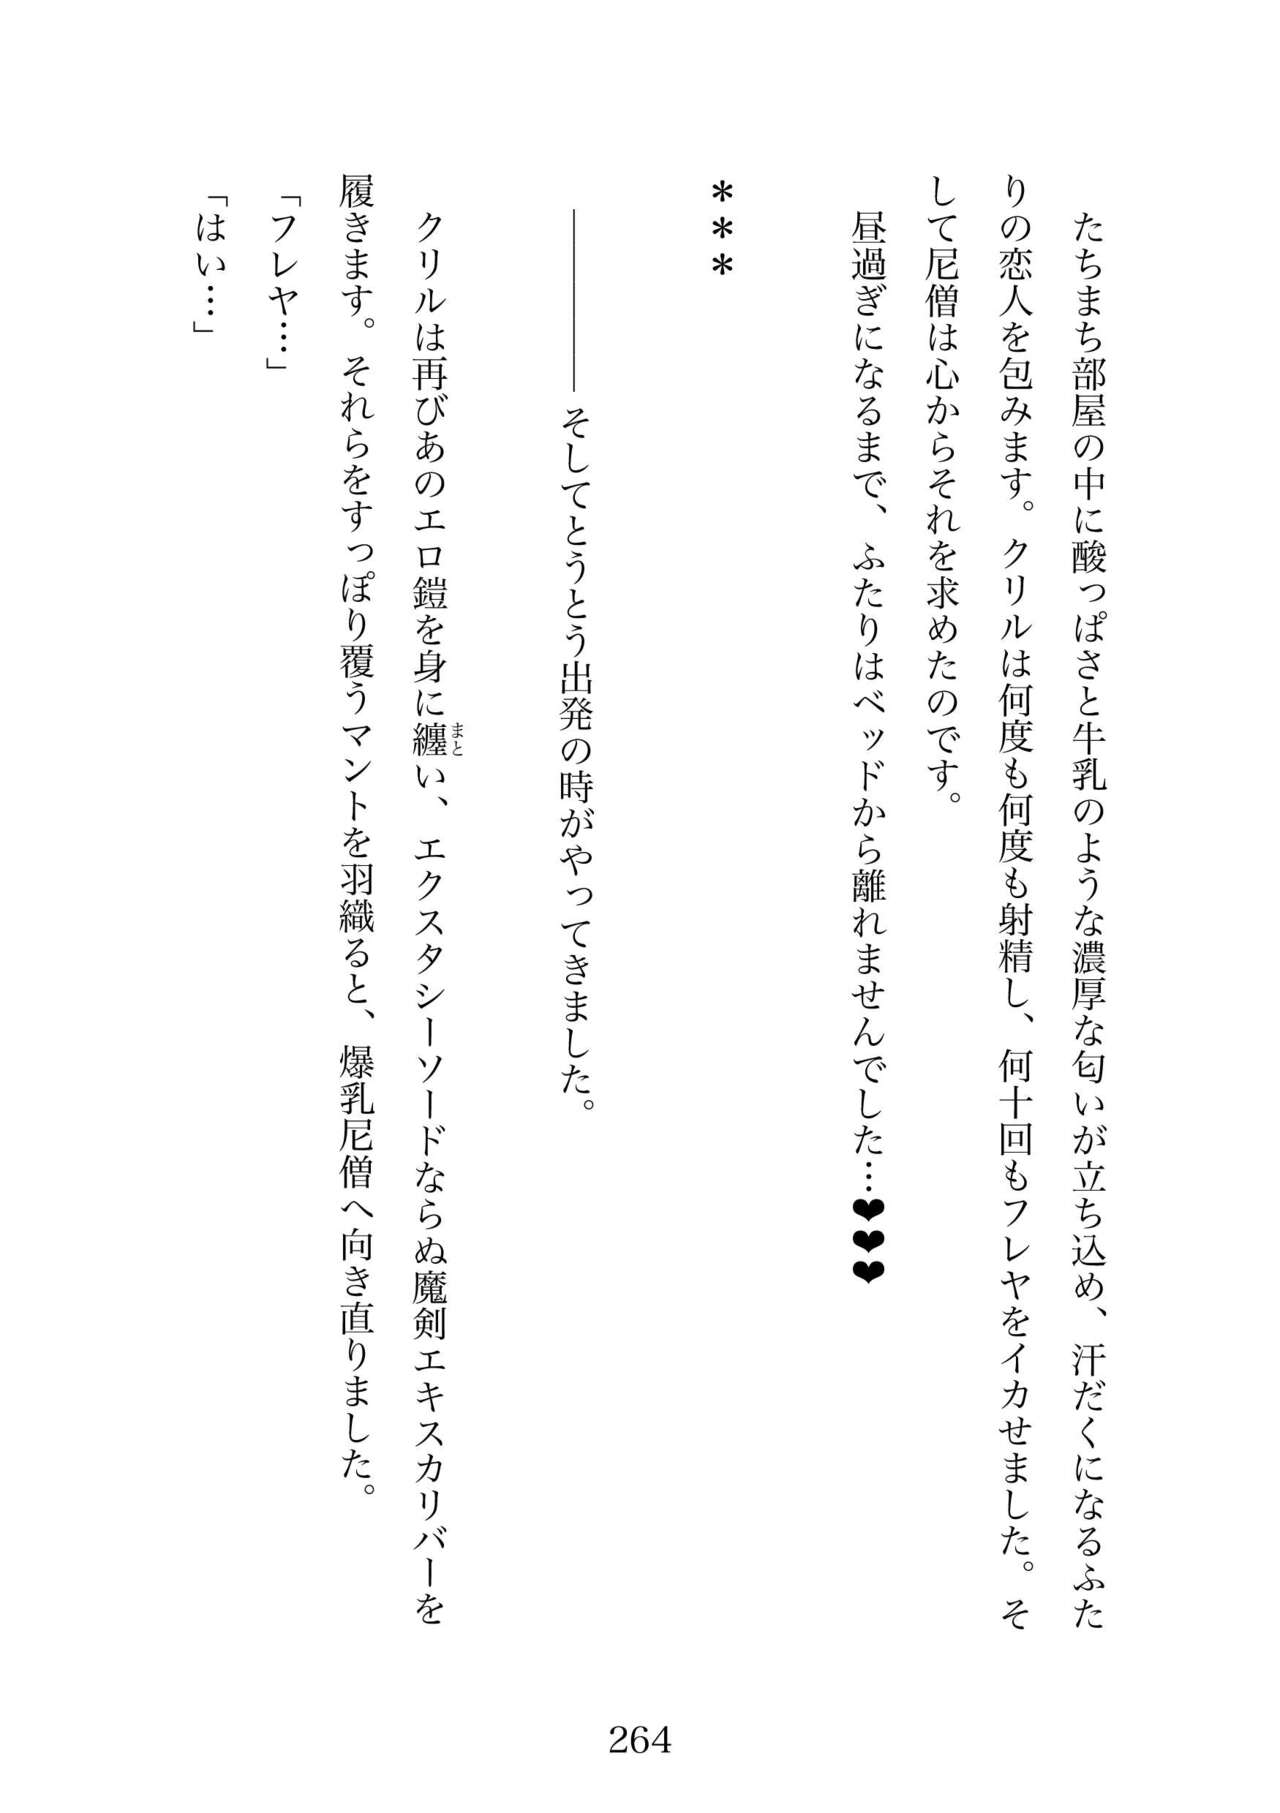 たちまち部屋の中に酸っぱさと牛乳のような濃厚な匂いが立ち込め、汗だくになるふた
りの恋人を包みます。クリルは何度も何度も射精し、何十回もフレヤをイカせました。そ
して尼僧は心からそれを求めたのです。
昼過ぎになるまで、ふたりはベッドから離れませんでした…❤❤❤
＊＊＊
―――――そしてとうとう出発の時がやってきました。
クリルは再びあのエロ鎧を身に纏い、エクスタシーソードならぬ魔剣エキスカリバーを
まと
履きます。それらをすっぽり覆うマントを羽織ると、爆乳尼僧へ向き直りました。
「フレヤ…」
「はい…」
264